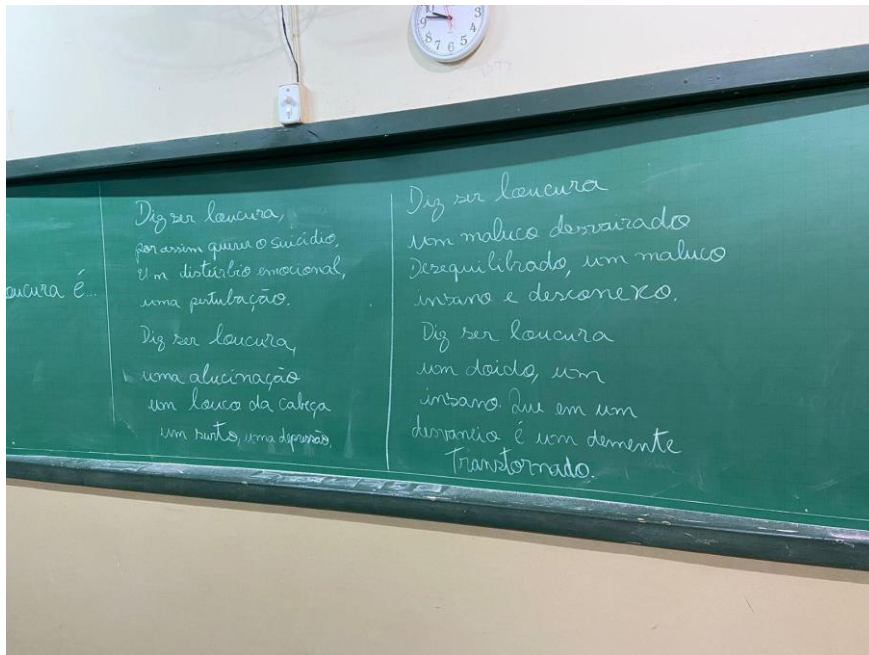 3
4
5
6
7
8
9
loucura é...
Diz ser loucura,
por assim querer o suicídio,
Um distúrbio emocional,
uma pertubação.
Diz ser loucura,
uma alucinação
um louco da cabeça
um surto, uma depressão.
Diz ser loucura
um maluco desvairado
Desequilibrado, um maluco
insano e desconexo.
Diz ser loucura
um doido, um
insano. Que em um
desvaneio é um demente
Transtornado.